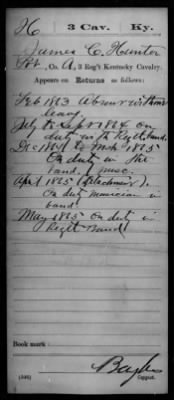 H 3 Cav. Ky.
James C. Hunter
Pvt., Co. A, 3 Reg't Kentucky Cavalry.
Appears on Returns as follows:
Feb 1863 Absent without
leave
July to Sept 1864 on
duty with Regtl band.
Dec 1864 to Mch 1865
On duty in the
band. musc.
April 1865 (Detachment).
On duty musician in
band
May 1865 On duty in
Regtl Band
Book mark:
(546) Copyist.